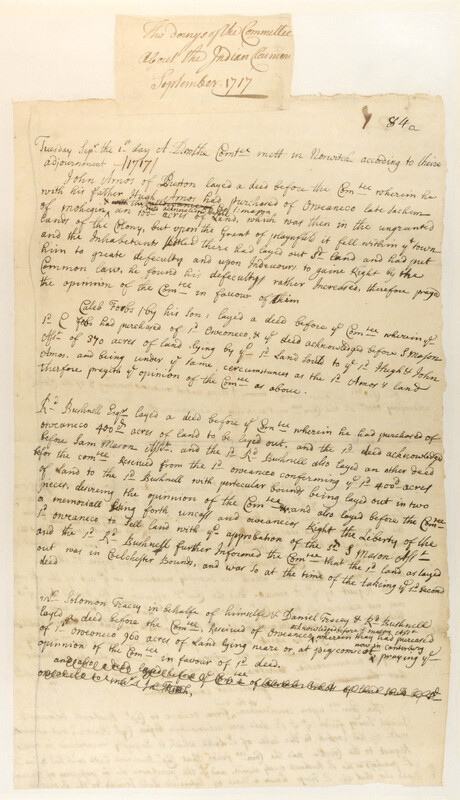 The doings of the Committee
About the Indian Claimes
September 1717
84a
Tuesday Sepr. the 1st. day A. D. the Comtee mett in Norwich according to theire
adjournment -/1717/-
John Amos of Preston layed a deed before the Comtee wherein he
with his father Hugh Amos had purchased of Oweaneco late Sachim
of mohegin an 100 acres of Land, which was then in the ungranted
Lands of the Colony, but upon the Grant of playnfield it fell within ye town
and the Inhabetants there had layed out sd. land and had put
him to greate defeculty and upon Indeavour to gaine Right by the
Common Law, he found his defeculty rather Increased, therefore prayed
the opinion of the Comtee in favour of him
Caleb Forbs / by his Son / layed a deed before ye Comtee wherein ye
sd. C Fobs had purchased of sd. Oweoneco, & ye deed acknowledged before S Mason
Assistt. of 370 acres of land lying by ye sd. Land South to ye sd. Hugh & John
Amos, and being under ye same cercumstances as the sd. Amos's land
therefore prayeth ye opinion of the Comtee as above.
Rd. Bushnell Esqr. layed a deed before ye Comtee wherein he had purchased of
owaneco 400d. acres of land to be layed out, and the sd. deed acknowledged
before Sam Mason Assistt. and the sd. Rd. Bushnell also layed an other deed
before the comtee Received from the sd. owaneco confirming ye sd. 400d acres
of Land to the sd. Bushnell with perticular bounds being layed out in two
pieces, desireing the opinion of the Comtee and also layed before the Comtee
a memoriall seting forth uncass and oweanecos Right the Liberty of the
sd. owaneco to Sell land with ye approbation of the sd. S Mason Assistt.
and the sd. Rd. Bushnell further Informed the Comtee that the sd. land as layed
out was in Colchester Bounds, and was so at the time of the taking ye sd. second
deed
Mr. Solomon Tracey in behalfe of himselfe & Daniel Tracey & Rd. Bushnell
acknowledged before S mason Assistt
layed a deed before the Comtee, Received of Oweaneco wherein they had purchased
now in canterbury
of sd. oweoneco 960 acres of Land lying neare or at
& praying ye
opinion of the Comtee in favour of sd. deed.